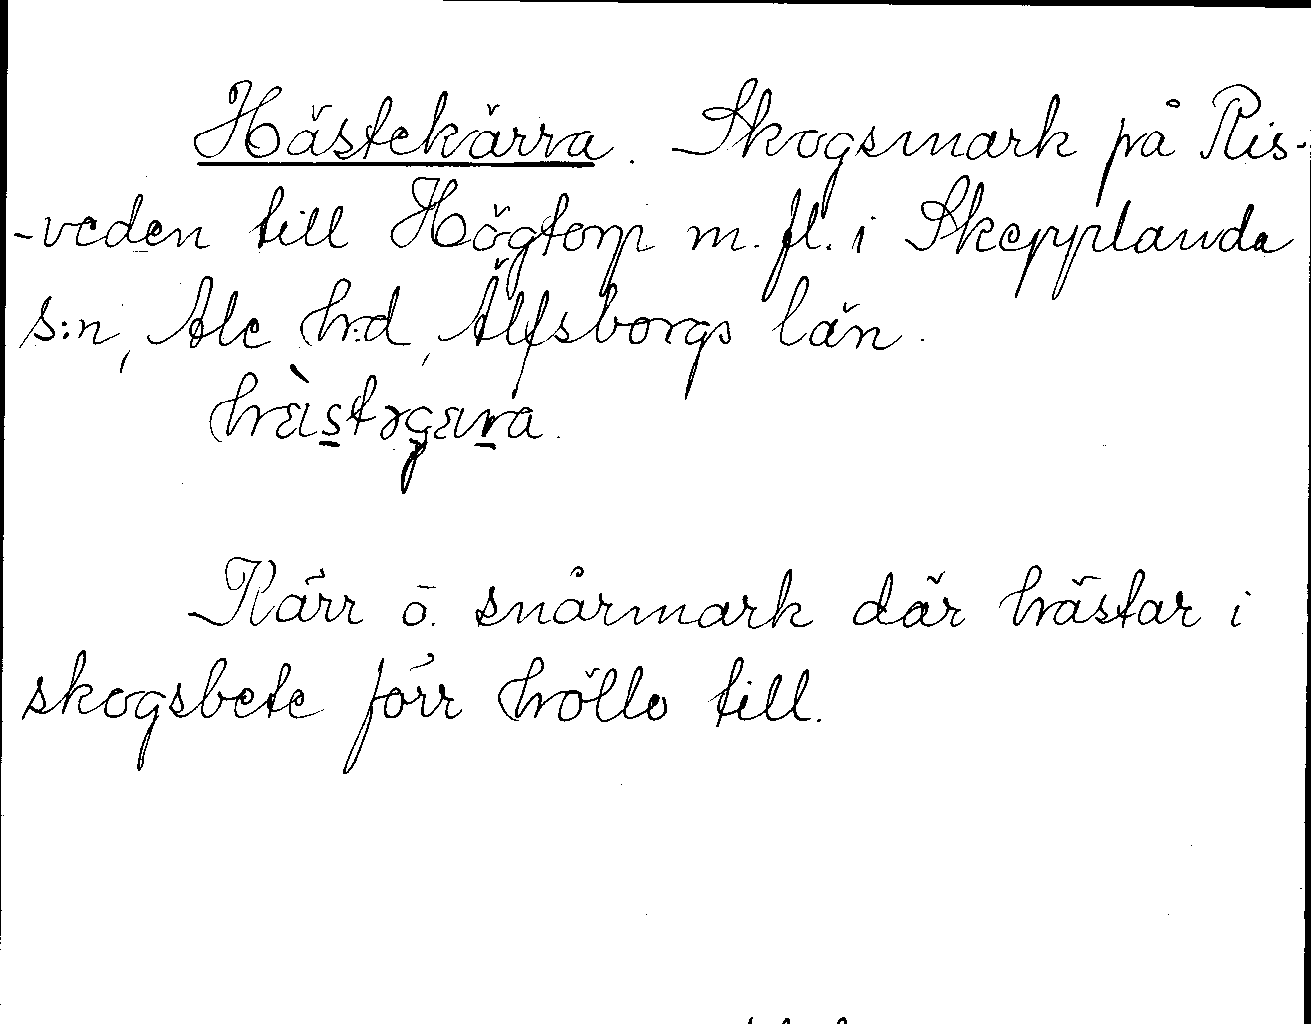 Hästekärra. Skogsmark på Ris-
-veden till Högtorp m. fl. i Skepplanda
s:n, Ale h:d, Älfsborgs län.

Kärr o. snårmark där hästar i
skogsbete förr höllo till.